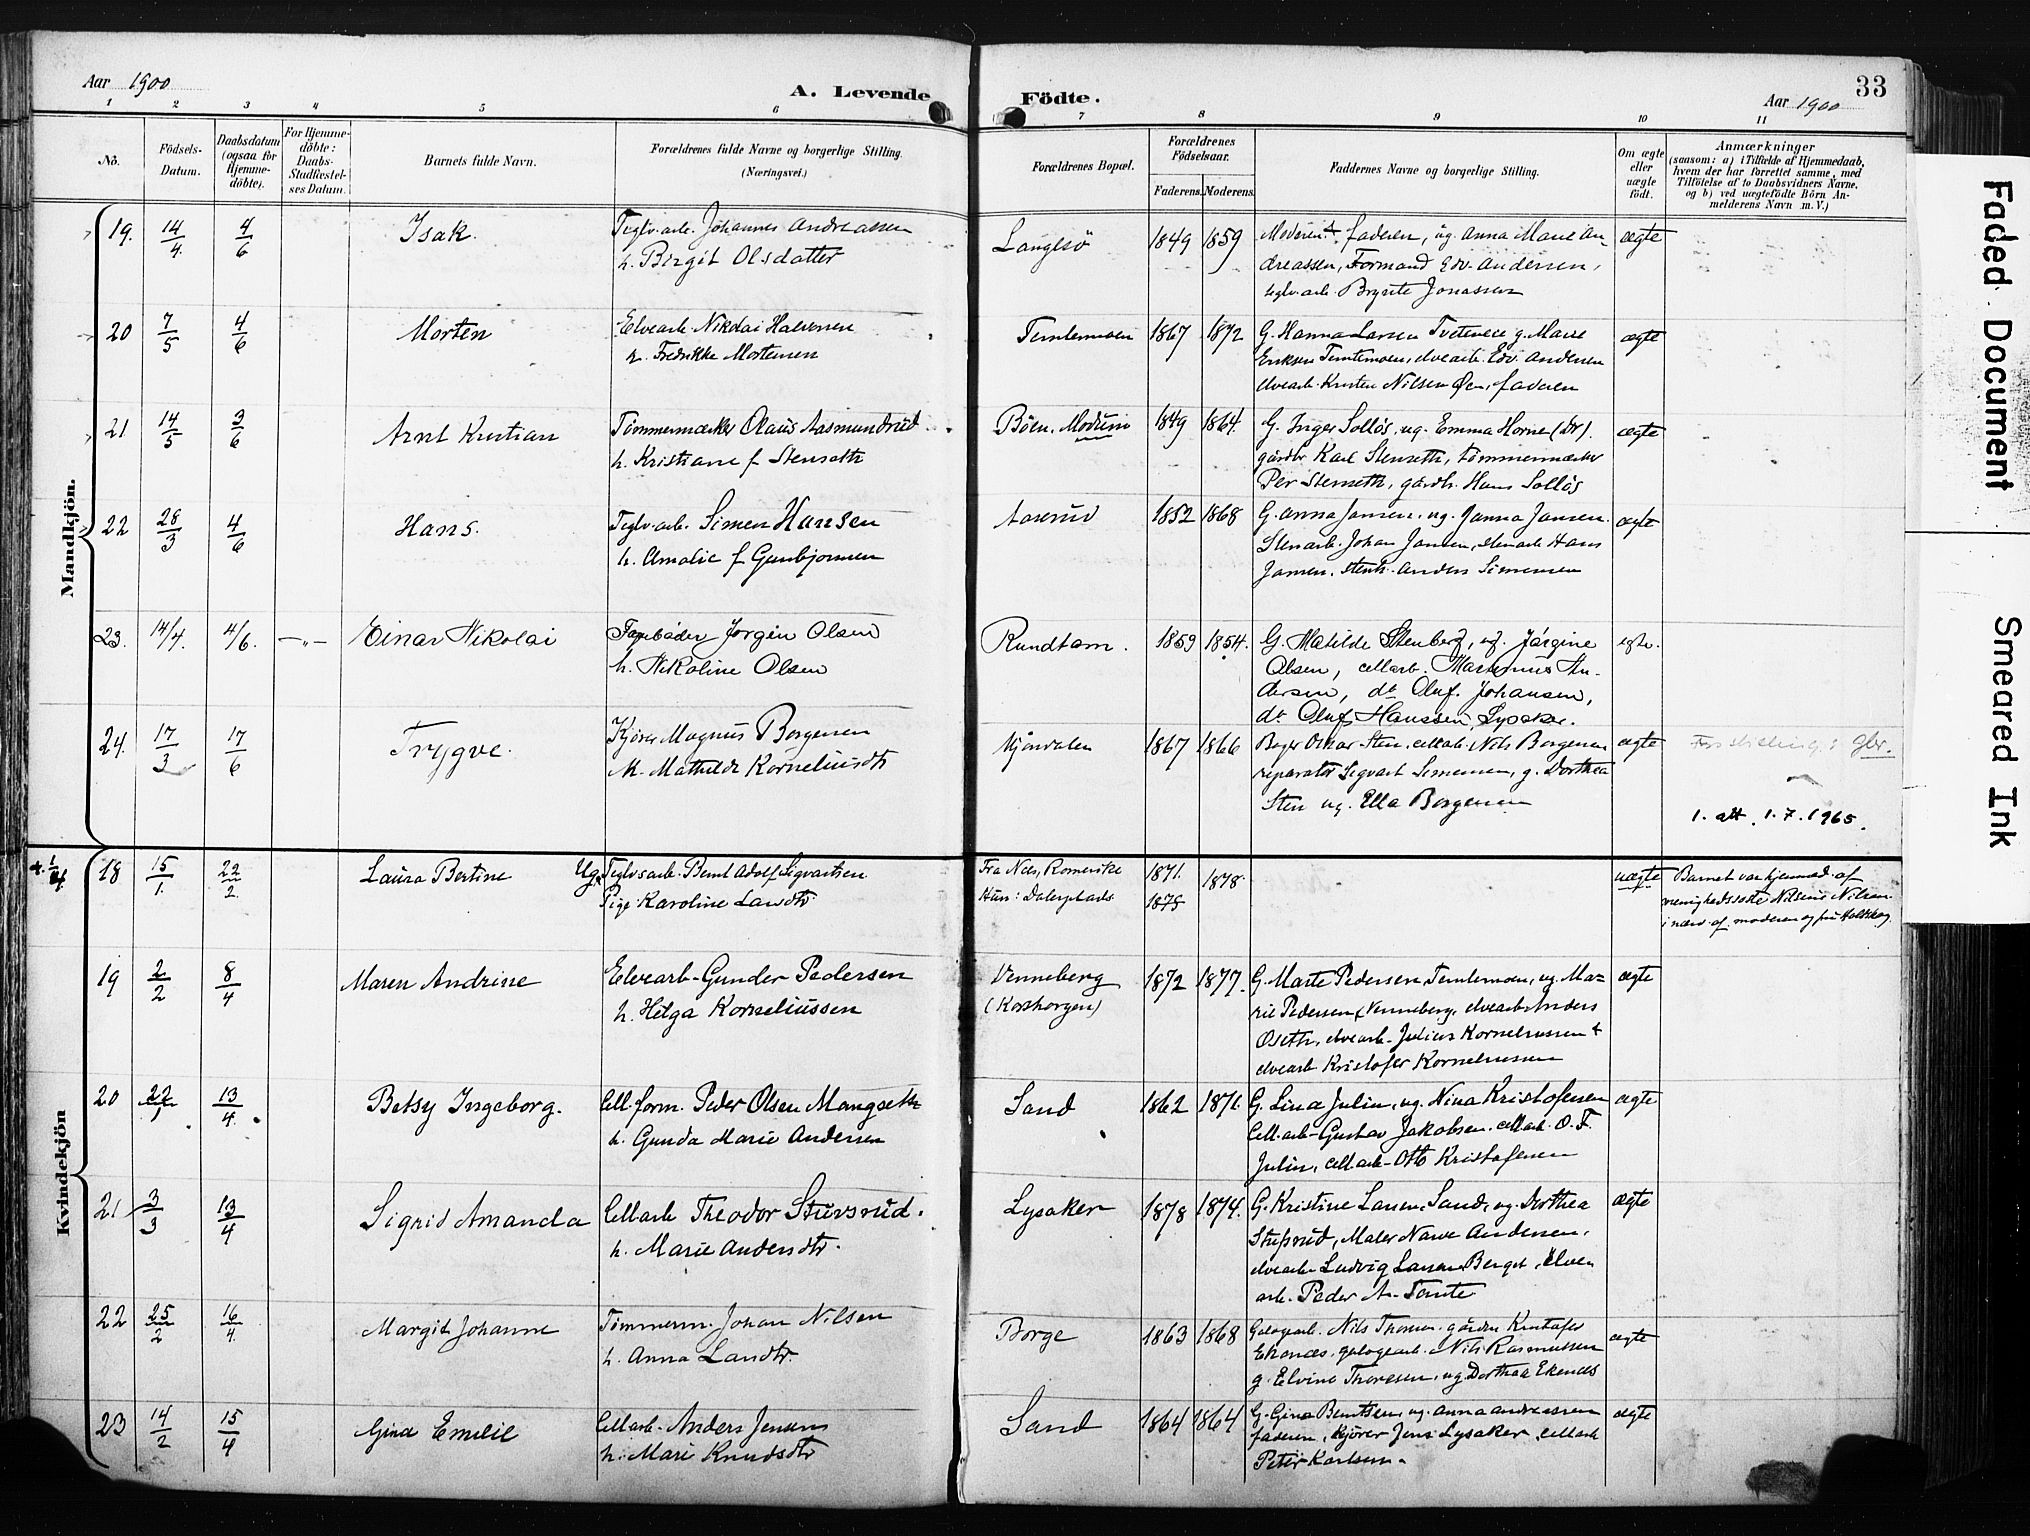 Aar 1900
A. Levende Födte.
33
Aar 1900
1 2 3 4 5 6 7 8 9 10 11
No. Födsels-Datum. Daabsdatum (ogsaa for Hjemmedöbte). For Hjemmedöbte: Daabs-Stadfæstelses Datum. Barnets fulde Navn. Forældrenes fulde Navne og borgerlige Stilling. (Næringsvei.)
Forældrenes Bopæl. Forældrenes Födselsaar. Faderens. Moderens. Faddernes Navne og borgerlige Stilling. Om ægte eller uægte födt. Anmærkninger
(saasom: a) i Tilfælde af Hjemmedaab,
hvem der har forrettet samme, med
Tilföielse af to Daabsvidners Navne,
og b) ved uægtefödte Börn An-
melderens Navn m. V.)
Mandkjön.
19. 14/4 4/6 Isak. Teglv.arb. Johannes Andreassen
h. Birgit Olsdatter
Langesö 1849 1859 Moderen + faderen, ug. Anna Marie An-
dreassen, Formand Edv. Andersen,
teglv.arb. Jonassen
ægte
20 7/5 4/6 Morten Elvearb Nikolai Halvorsen
h. Fredrikke Mortensen
Temtemoen 1867 1872 G. Hanna Larsen Tvetevere g. Marie
Eriksen Temtemoen, elvearb. Edv. Andersen
elvearb. Kristen Nilsen Øen, faderen
ægte
21 14/5 3/6 Arnt Kristian Tömmermærker Olaus Aasmundrud
h. Kristiane f Stenseth
Böen, Modum 1849 1864. G. Inger Sollös, ug. Emma Horne (Dr).
gårdbr Karl Stenseth, tömmermærker
Per Stenseth, gårdb. Hans Sollös
ægte
22 28/3 4/6 Hans. Teglv.arb. Simen Hansen
h. Amalie f Gunbjörnsen
Aaserud 1852 1868 G. Anna Jansen, ug. Janna Jansen
Stenarb. Johan Jansen, stenarb Hans
Jansen, stenh. Anders Simensen
ægte
23. 14/4. 4/6. —"— Einar Nikolai Jörgen Olsen
h. Nikoline Olsen
Rundtom. 1859 1854. G. Matilde Stenberg, ug. Jörgine
Olsen, cellarb. Martinius An-
dersen, do Oluf Johansen,
do Oluf Hanssen, Lysaker.
egte.
24. 17/3 17/6 Trygve. Kjörer Magnus Borgersen
h. Mathilde Korneliusdtr
Mjöndalen 1867 1866 Bager Oskar Sten, cellarb. Nils Borgersen
reparatör Sigvart Simensen, g. Dorthea
Sten ug. Ella Borgersen
ægte
1. att. 1.7.1965.
Kvindekjön
18 15/1. 22/2 Laura Bertine Ug. Teglv.arb. Bernt Adolf Sigvartsen
Pige Karoline Larsdtr
Fra Nes, Romerike
1871.
1875 1878. uægte Barnet var hjemmed. af
menighedssöster Nilsine Nilsen
i nærv. af moderen og fru
19 2/2 8/4 Maren Andrine Elvearb. Gunder Pedersen
h. Helga Korneliussen
Venneberg
(Korshorgen)
1872 1877. G. Marte Pedersen Temtemoen, ug. Ma-
rie Pedersen, Venneberg, elvearb. Anders
Oseth, elvearb. Julius Korneliussen +
elvearb Kristofer Korneliussen
ægte
20 22/1 13/4. Betsy Ingeborg. Cell.form. Peder Olsen Mangseth
h. Gunda Marie Andersen
Sand 1862 1871. G. Lina Julin, ug. Nina Kristofersen
Cell.arb. Gustav Jakobsen, cellarb. O. F.
Julin, cellarb. Otto Kristofersen
ægte
21 3/3 13/4 Sigrid Amanda Cellarb Theodor Stuvsrud.
h. Marie Andersdtr.
Lysaker 1878 1874. G. Kristine Larsen, Sand, ug. Dorthea
Stufsrud, Maler Narve Andersen,
elvearb Ludvig Larsen Berget, elve-
arb. Peder A. Tomte
ægte
22 25/2 16/4. Margit Johanne Tömmerm. Johan Nilsen
h. Anna Larsdtr.
Borge 1863 1868 Nils Thorsen, gårdbr Kristofer
Ekenæs, Nils Rasmussen
g. Elvine Thoresen, ug Dorthea Ekenæs
ægte
23 14/2 15/4 Gina Emilie Cellarb. Anders Jensen
h. Mari Knudsdtr
Sand 1864 1864 G. Gina Berntsen, ug. Anna Andreassen
faderen, kjörer Jens Lysaker, cellarb
Peter Karlsen.
ægte
Faded Document Smeared Ink